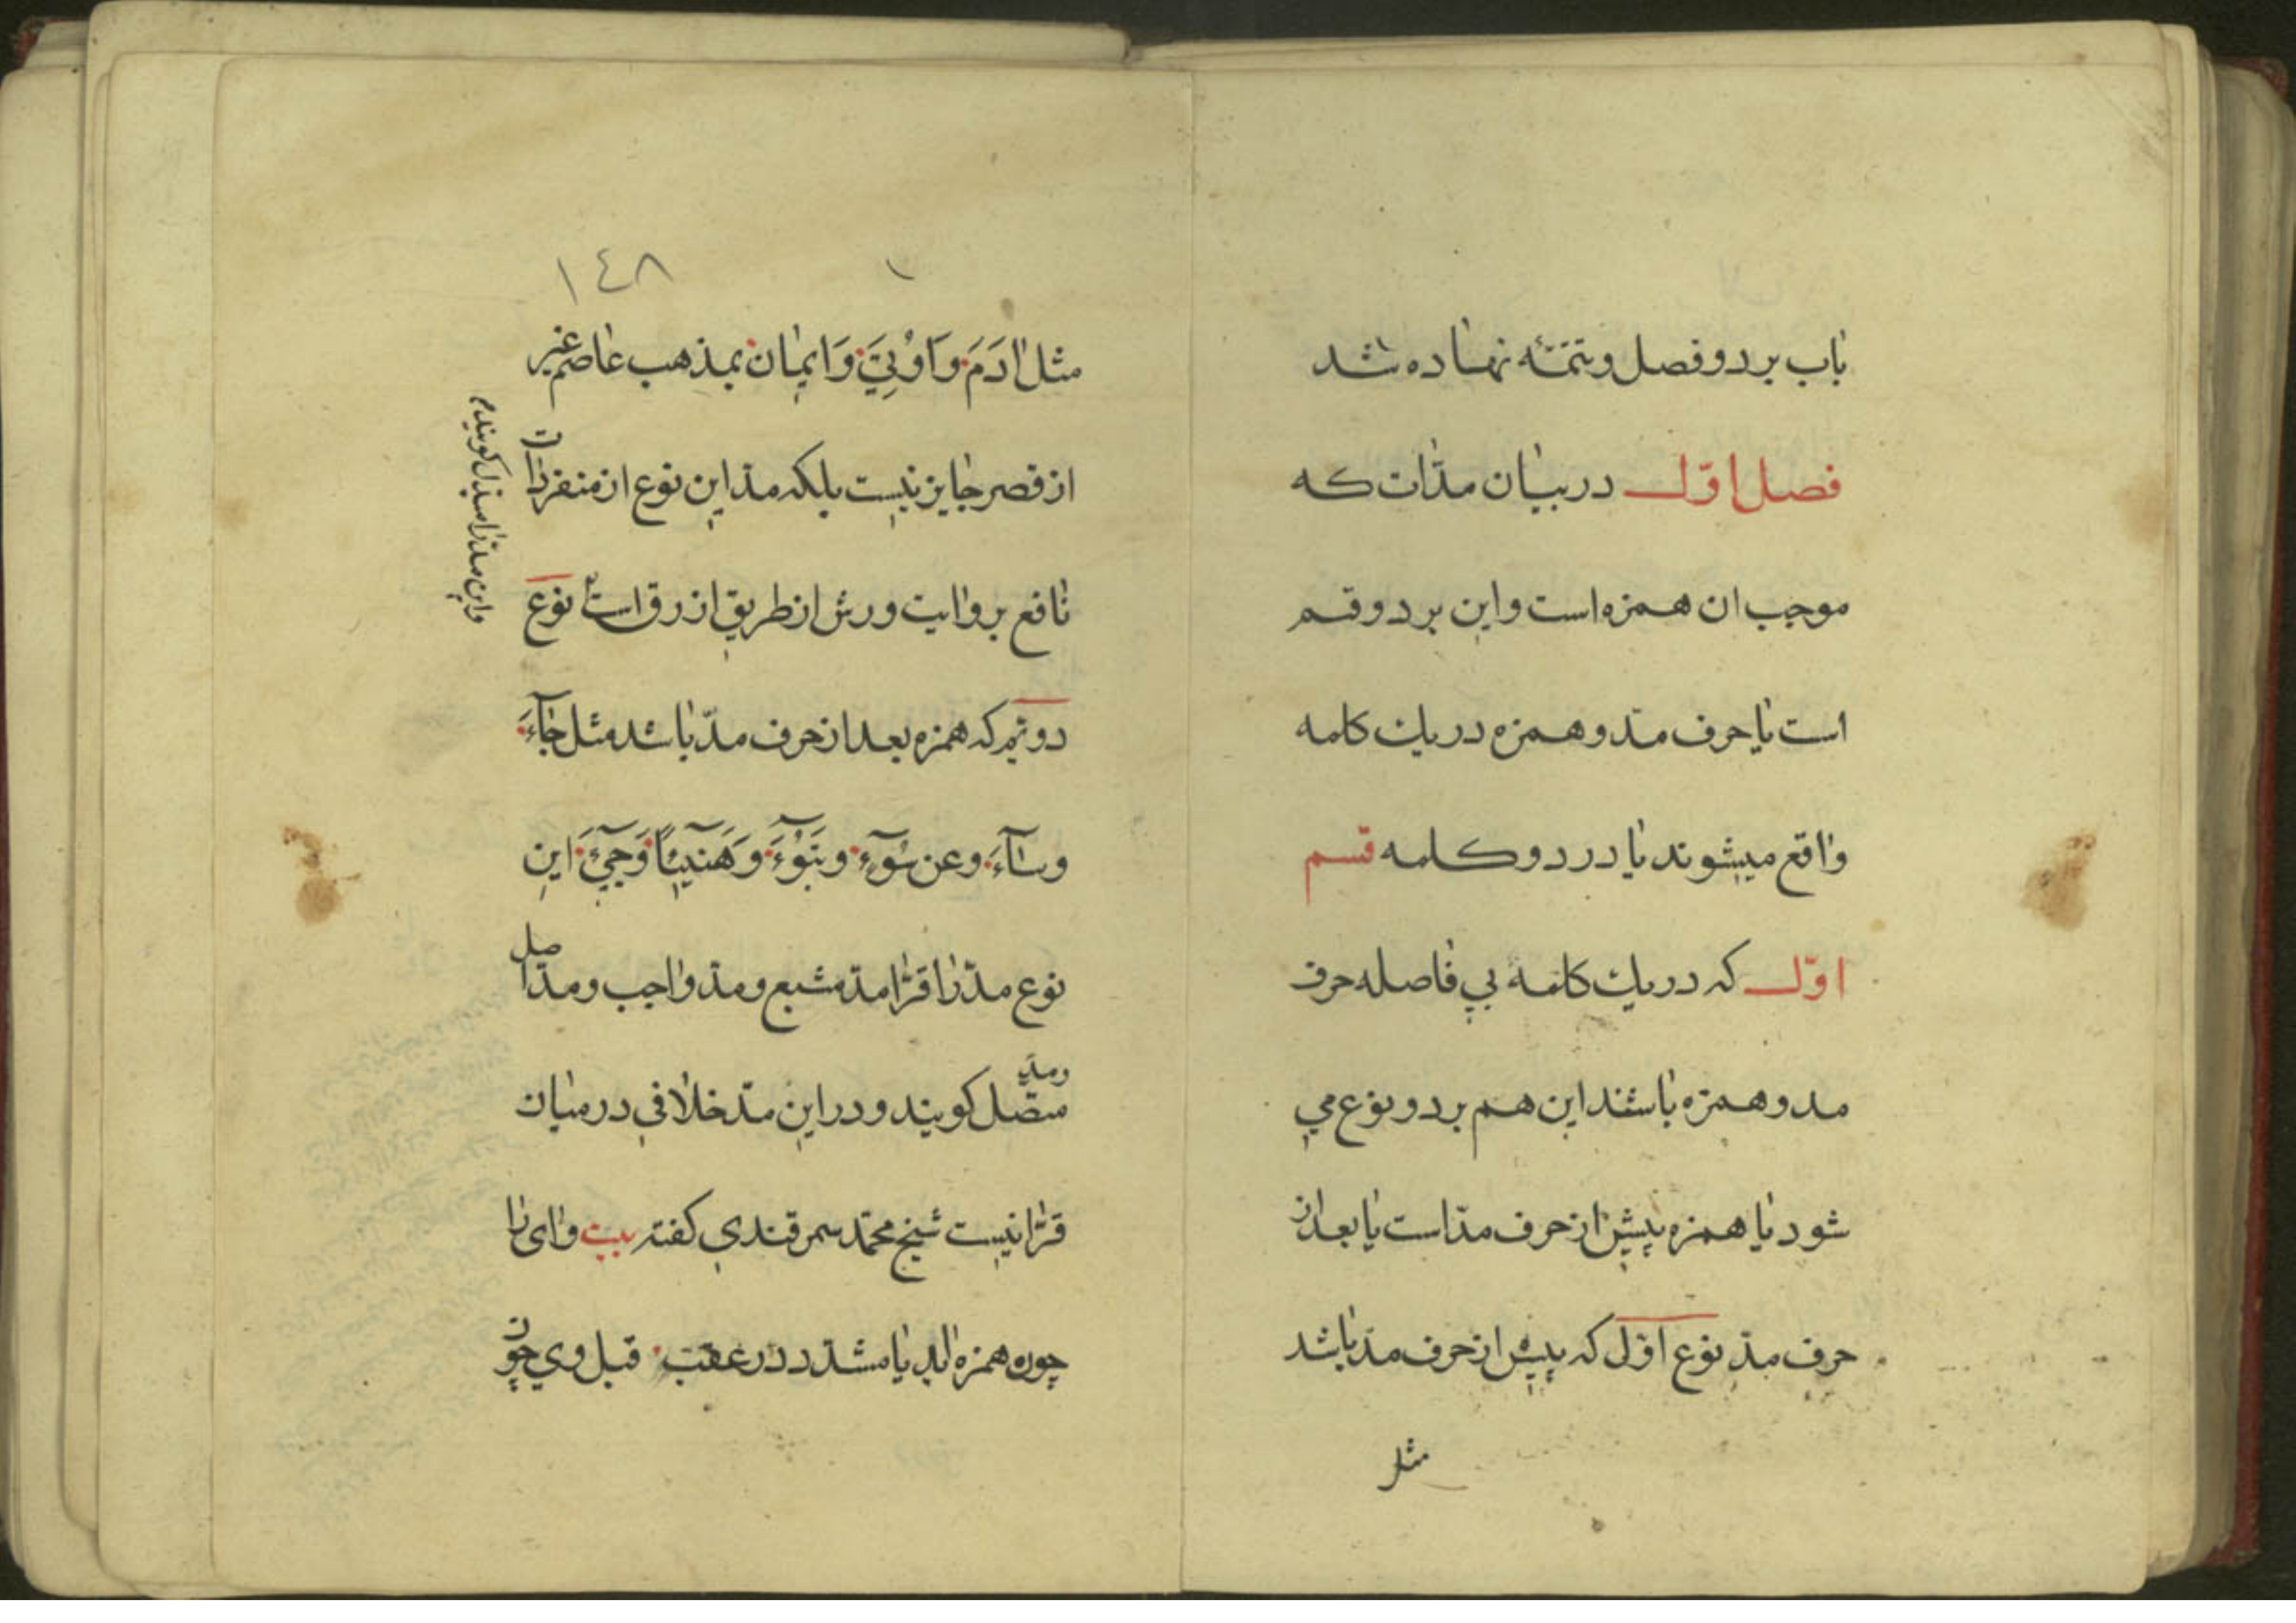 باب بر دو فصل و تتمّه نهاده شد
فصل اوّل در بیان مدّات که
موجب ان همزه است و این بر دو قسم
است یا حرف مدّ و همزه در یك کلمه
واقع میشوند یا در دو کلمه قسم
اوّل که در یك کلمهٔ بی فاصله حرف
مد و همزه باشند این هم بر دو نوع می
شود یا همزه پیش از حرف مدّ است یا بعد از
حرف مدّ نوع اوّل که پیش از حرف مدّ باشد
مثل
١٤٨
مثل اٰدَمَ وَ اُوْتِيَ وَ اِيمٰان بمذهب عاصم غیر
از قصر جایز نیست بلکه مدّ این نوع از منفردات
نافع بروایت ورش از طریق ازرق است نوع
دویّم که همزه بعد از حرف مدّ باشد مثل جٰآءَ
وسٰآءَ وعن سُوٓءٍ وتَبُوٓءَ وهَنٓيئًا وَجِيٓءَ این
نوع مدّ را قرّا مدّ مشبع و مدّ واجب و مدّ اصل
ومدّ
متصّل کویند و در این مدّ خلافی در میان
قرّا نیست شیخ محمّد سمرقندی کفته بیت وای را
چون همزه اید یا مشدّد در عقب قبل وی چون
واین مدّ را مدّ بدل کویند م